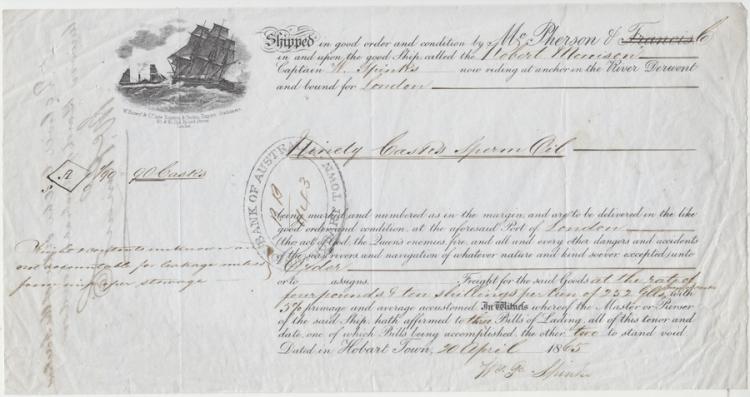 Shipped in good order and condition by McPherson & Francis Co
in and upon the good Ship called the Robert Morrison
Captain W. Spinks now riding at anchor in the River Derwent
and bound for London
Ninety Casks Sperm Oil
1/90 90 Casks
BANK OF AUST
TOWN
being marked and numbered as in the margin, and are to be delivered in the like
good order and condition, at the aforesaid Port of London
the act of God, the Queen's enemies, fire, and all and every other dangers and accidents
of the seas, rivers and navigation of whatever nature and kind soever excepted, unto
Order
or to assigns. Freight for the said Goods at the rate of
four pounds & ten shillings per tun of 252 Glls with
5% primage and average accustomed. In Witness whereof the Master or Purser
of the said Ship, hath affirmed to three Bills of Lading, all of this tenor and
date, one of which Bills being accomplished, the other two to stand void.
Dated in Hobart Town, 20 April 1865
Wm Spinks
Weight & contents unknown and
not accountable for leakage unless
from improper stowage